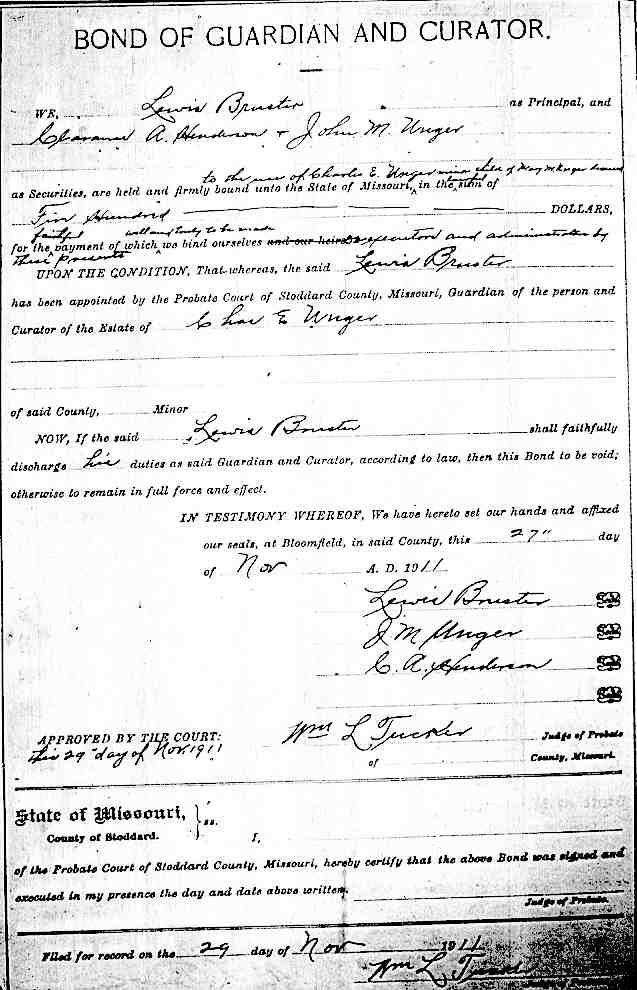 BOND OF GUARDIAN AND CURATOR.
WE, Lewis Bruster as Principal, and
Clarance A. Henderson + John M. Unger
to the use of Charles E. Unger minor child of Mary M Unger
as Securities, are held and firmly bound unto the State of Missouri, in the sum of
Hundred DOLLARS,
faithful well and truly to be made
for the payment of which we bind ourselves and our heirs executors and administrators by
these presents
UPON THE CONDITION, That whereas, the said Lewis Bruster
has been appointed by the Probate Court of Stoddard County, Missouri, Guardian of the person and
Curator of the Estate of Chas E Unger
of said County, Minor
NOW, If the said Lewis Bruster shall faithfully
discharge his duties as said Guardian and Curator, according to law, then this Bond to be void;
otherwise to remain in full force and effect.
IN TESTIMONY WHEREOF, We have hereto set our hands and affixed
our seals, at Bloomfield, in said County, this 27" day
of Nov A. D. 1911
Lewis Bruster
J M Unger
C. A. Henderson
APPROVED BY THE COURT: Wm L Tucker Judge of Probate
this 29" day of Nov. 1911 of County, Missouri.
State of Missouri, } ss.
County of Stoddard. I,
of the Probate Court of Stoddard County, Missouri, hereby certify that the above Bond was signed and
executed in my presence the day and date above written.
Judge of Probate.
Filed for record on the 29 day of Nov 1911
Wm L Tucker
Judge of Probate